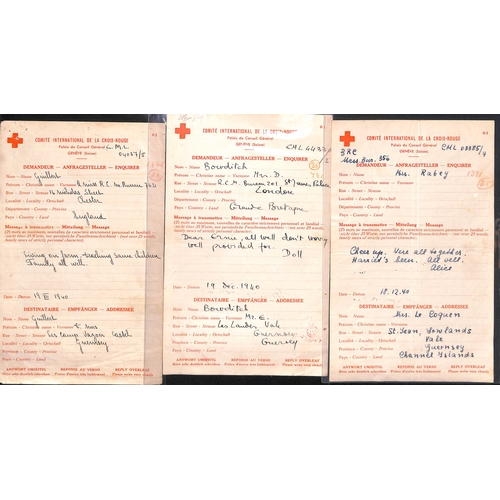 COMITÉ INTERNATIONAL DE LA CROIX-ROUGE
Palais du Conseil Général
GENÈVE (Suisse)
DEMANDEUR - ANFRAGESTELLER - ENQUIRER
Nom - Name Guillart
Prénom - Christian name - Vorname
Rue - Street - Strasse
Localité - Locality - Ortschaft Chester
Département - County - Provinz
Pays - Country - Land England
Message à transmettre - Mitteilung - Message
(25 mots au maximum, nouvelles de caractère strictement personnel et familial)
(nicht über 25 Worte, nur persönliche Familiennachrichten) (not over 25 words,
family news of strictly personal character)
Living on farm teaching same address
Family all well.
Date - Datum
DESTINATAIRE - EMPFÄNGER - ADDRESSEE
Nom - Name Guillart
Prénom - Christian name - Vorname
Rue - Street - Strasse
Localité - Locality - Ortschaft Guernsey
Province - County - Provinz
Pays - Country - Land
ANTWORT UMSEITIG RÉPONSE AU VERSO REPLY OVERLEAF
Bitte sehr deutlich schreiben Prière d'écrire très lisiblement Please write very clearly
COMITÉ INTERNATIONAL DE LA CROIX-ROUGE
Palais du Conseil Général
GENÈVE (Suisse)
DEMANDEUR - ANFRAGESTELLER - ENQUIRER
Nom - Name Bowditch
Prénom - Christian name - Vorname Mrs. D.
Rue - Street - Strasse R.C.M. Bureau 201 St James' Palace
Localité - Locality - Ortschaft London
Département - County - Provinz
Pays - Country - Land Grande Bretagne
Message à transmettre - Mitteilung - Message
(25 mots au maximum, nouvelles de caractère strictement personnel et familial)
(nicht über 25 Worte, nur persönliche Familiennachrichten) (not over 25 words,
family news of strictly personal character)
Dear Ernie, all well don't worry
well provided for.
Doll
Date - Datum 19 Dec. 1940
DESTINATAIRE - EMPFÄNGER - ADDRESSEE
Nom - Name Bowditch
Prénom - Christian name - Vorname Mr. E.
Rue - Street - Strasse Les Landes Vale
Localité - Locality - Ortschaft Guernsey
Province - County - Provinz
Pays - Country - Land
ANTWORT UMSEITIG RÉPONSE AU VERSO REPLY OVERLEAF
Bitte sehr deutlich schreiben Prière d'écrire très lisiblement Please write very clearly
COMITÉ INTERNATIONAL DE LA CROIX-ROUGE
Palais du Conseil Général
GENÈVE (Suisse)
BRC
Mess. Bur. 356
DEMANDEUR - ANFRAGESTELLER - ENQUIRER
Nom - Name Mrs. Rabey
Prénom - Christian name - Vorname
Rue - Street - Strasse
Localité - Locality - Ortschaft
Département - County - Provinz
Pays - Country - Land
Message à transmettre - Mitteilung - Message
(25 mots au maximum, nouvelles de caractère strictement personnel et familial)
(nicht über 25 Worte, nur persönliche Familiennachrichten) (not over 25 words,
family news of strictly personal character)
Cheer up. We're all together.
Harold's been. All well.
Alice
Date - Datum 18.12.40
DESTINATAIRE - EMPFÄNGER - ADDRESSEE
Nom - Name Mrs. Le Poquen
Prénom - Christian name - Vorname
Rue - Street - Strasse St. Jean, Rowlands
Localité - Locality - Ortschaft Vale
Province - County - Provinz Guernsey
Pays - Country - Land Channel Islands
ANTWORT UMSEITIG RÉPONSE AU VERSO REPLY OVERLEAF
Bitte sehr deutlich schreiben Prière d'écrire très lisiblement Please write very clearly